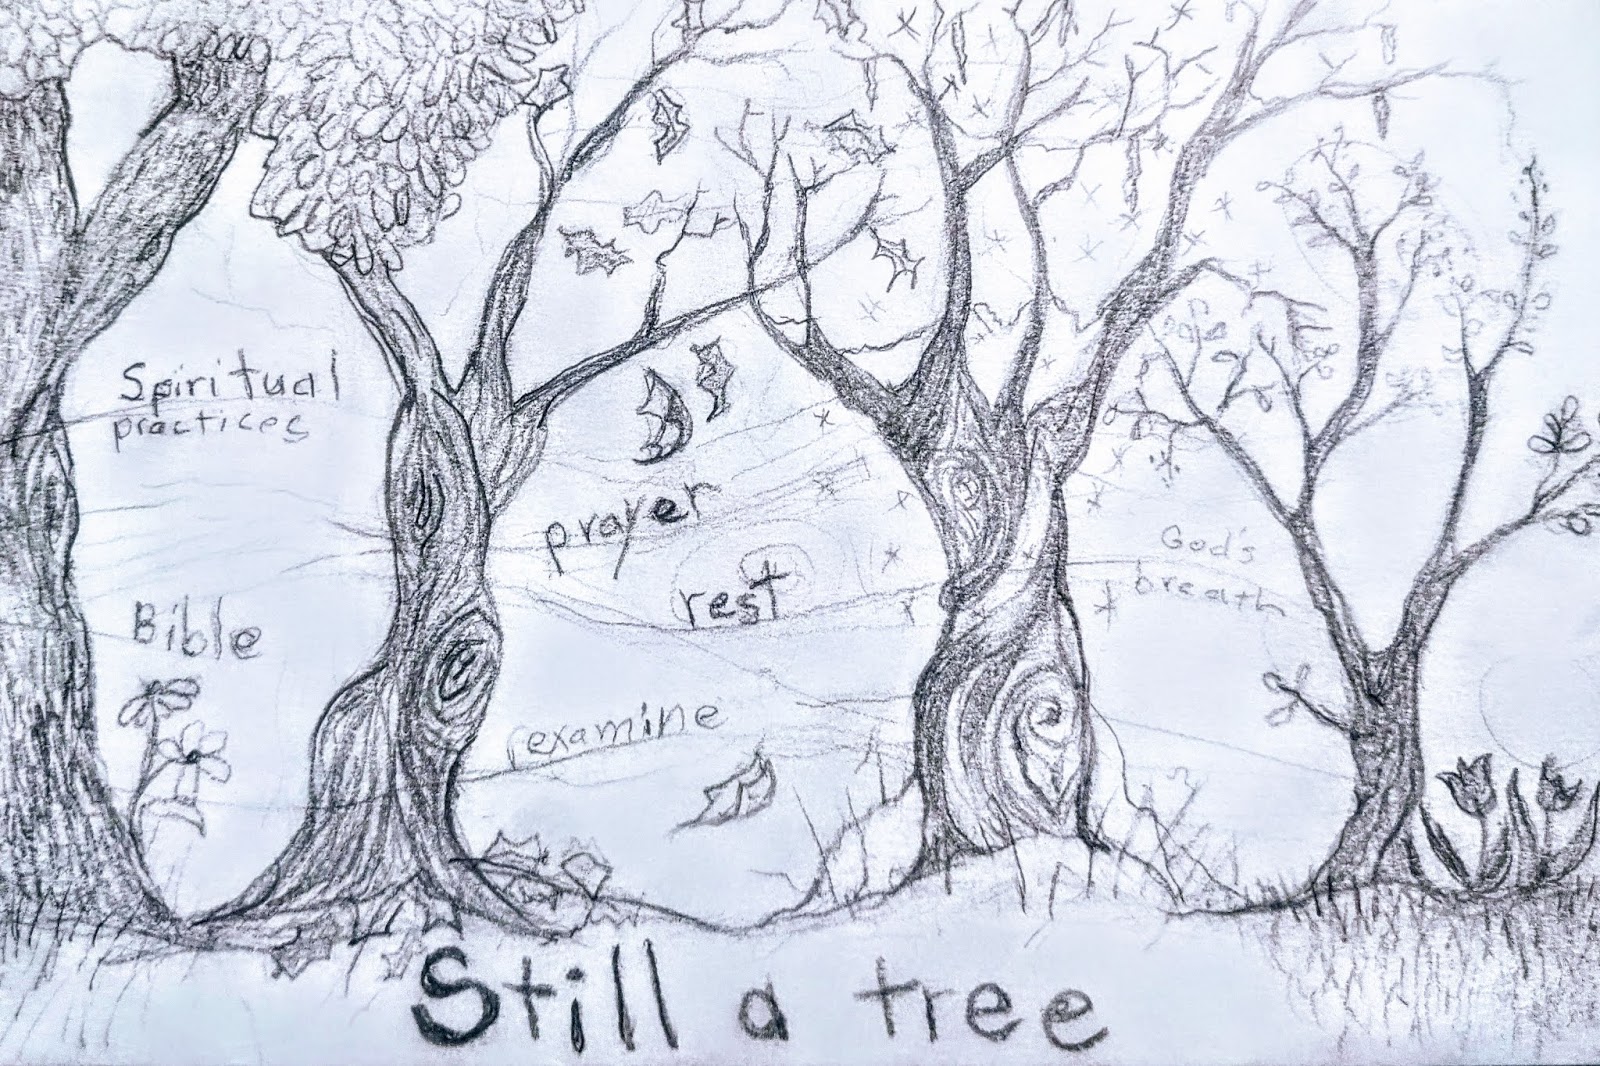 Spiritual
practices
Bible
prayer
rest
rexamine
God's
breath
Still a tree